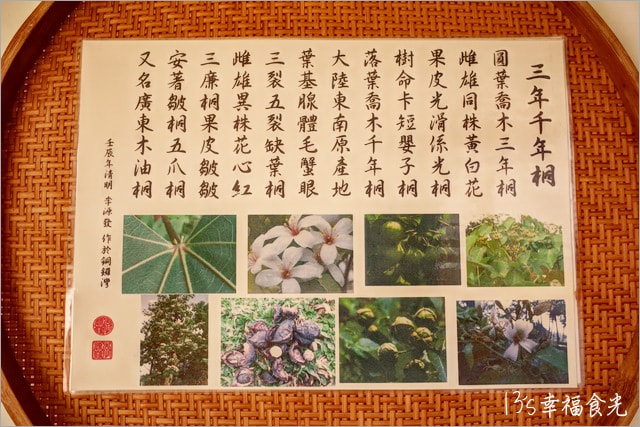 三年千年桐
圓葉喬木三年桐
雌雄同株黃白花
果皮光滑係光桐
樹命卡短嬰子桐
落葉喬木千年桐
大陸東南原產地
葉基腺體毛蟹眼
三裂五裂缺葉桐
雌雄異株花心紅
三廉桐果皮皺皺
安著皺桐五爪桐
又名廣東木油桐
壬辰年清明 李源發 作於銅鑼灣
13's幸福食光